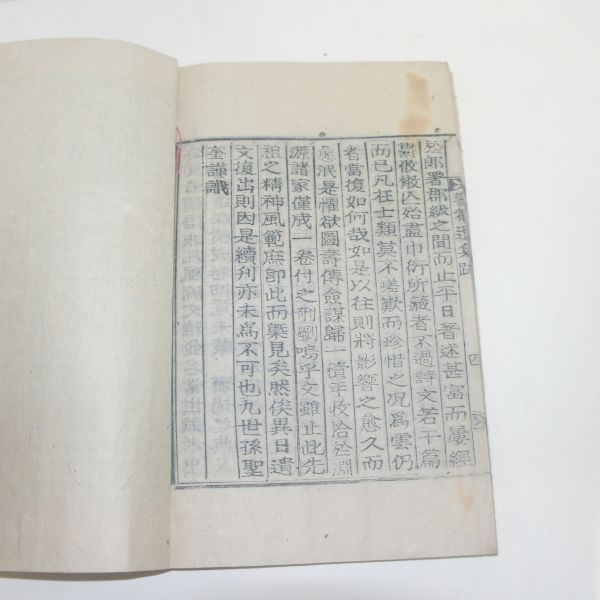 於郎署郡紱之間而止平日著述甚富而屢經
欝攸散亾殆盡巾衍所藏者不過詩文若干篇
而已凡在士類莫不嗟歎而珍惜之况爲雲仍
者當復如何哉如是以徃則將影響之愈久而
愈泯是懼欲圖壽傳僉謀歸一積年收拾於淵
源諸家僅成一卷付之剞劂嗚乎文雖止此先
祖之精神風範庶卽此而槩見矣然俟異日遺
文復出則因是續刋亦未爲不可也九世孫聖
奎謹識
遺集跋
四